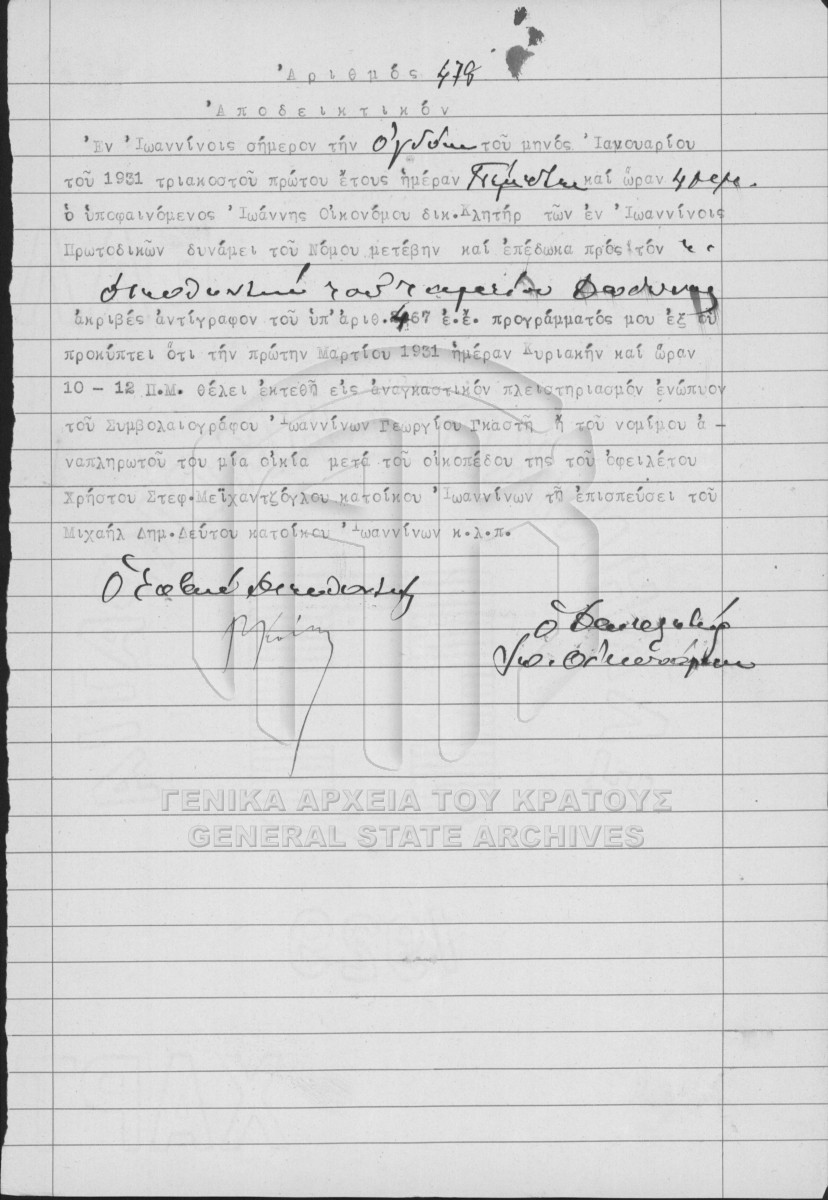 Ἀριθμός 478
Ἀποδεικτικόν
Ἐν Ἰωαννίνοις σήμερον τήν ὀγδόην τοῦ μηνός Ἰανουαρίου
τοῦ 1931 τριακοστοῦ πρώτου ἔτους ἡμέραν Πέμπτην καί ὥραν 4 μ.μ.
ὁ ὑποφαινόμενος Ἰωάννης Οἰκονόμου δικ.Κλητήρ τῶν ἐν Ἰωαννίνοις
Πρωτοδικῶν δυνάμει τοῦ Νόμου μετέβην καί ἐπέδωκα πρός τόν κ.
Διευθυντήν τοῦ Ταμείου Δωδώνης
ἀκριβές ἀντίγραφον τοῦ ὑπ'ἀριθ. 467 ἐ.ἔ. προγράμματός μου ἐξ οὗ
προκύπτει ὅτι τήν πρώτην Μαρτίου 1931 ἡμέραν Κυριακήν καί ὥραν
10 - 12 Π.Μ. θέλει ἐκτεθῆ εἰς ἀναγκαστικόν πλειστηριασμόν ἐνώπιον
τοῦ Συμβολαιογράφου Ἰωαννίνων Γεωργίου Γκαστῆ ἤ τοῦ νομίμου ἀ -
ναπληρωτοῦ του μία οἰκία μετά τοῦ οἰκοπέδου της τοῦ ὀφειλέτου
Χρήστου Στεφ.Μεϊχαντζόγλου κατοίκου Ἰωαννίνων τῆ ἐπισπεύσει τοῦ
Μιχαήλ Δημ.Δεύτου κατοίκου Ἰωαννίνων κ.λ.π.
Ὁ Διευθυντής
Ὁ Δικ. Κλητήρ
Ἰω. Οἰκονόμου
ΓΕΝΙΚΑ ΑΡΧΕΙΑ ΤΟΥ ΚΡΑΤΟΥΣ
GENERAL STATE ARCHIVES